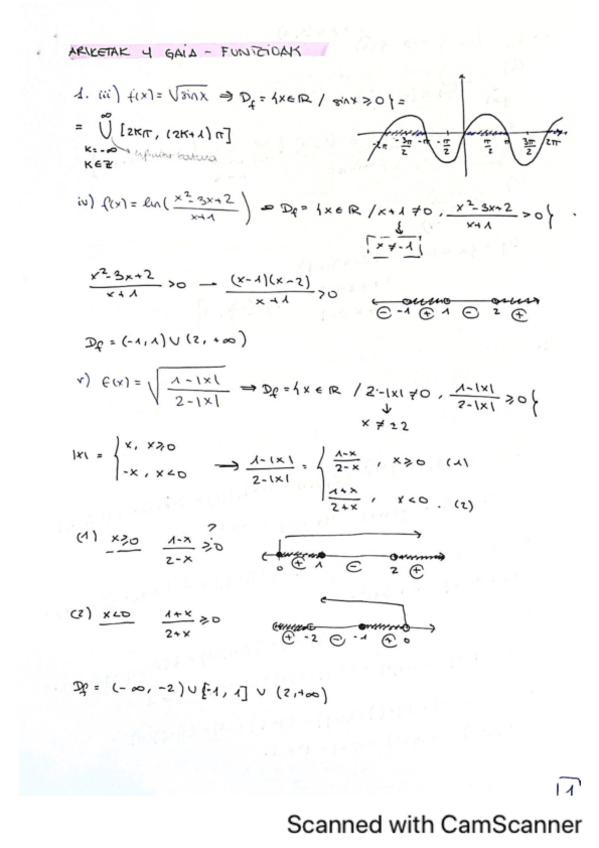 ARIKETAK 4 GAIA - FUNTZIOAK
1. iii) f(x) = √sinx ⇒ Df = {x∈ℝ / sinx ≥ 0} =
= ∞⋃k=-∞ [2kπ, (2k+1)π]
k∈ℤ
-2π -3π/2 -π -π/2 π/2 π 3π/2 2π
iv) f(x) = ln( (x²-3x+2)/(x+1) ) ⇒ Df = {x∈ℝ / x+1 ≠ 0, (x²-3x+2)/(x+1) > 0}
↓
x ≠ -1
(x²-3x+2)/(x+1) > 0 → (x-1)(x-2)/(x+1) > 0
⊖ -1 ⊕ 1 ⊖ 2 ⊕
Df = (-1, 1) ∪ (2, +∞)
v) f(x) = √( (1-|x|)/(2-|x|) ) ⇒ Df = {x∈ℝ / 2-|x| ≠ 0, (1-|x|)/(2-|x|) ≥ 0}
↓
x ≠ ±2
|x| = { x, x≥0
-x, x<0
→ (1-|x|)/(2-|x|) = { (1-x)/(2-x), x≥0 (1)
(1+x)/(2+x), x<0. (2)
(1) x≥0 (1-x)/(2-x) ≥ 0 ?
0 ⊕ 1 ⊖ 2 ⊕
(2) x<0 (1+x)/(2+x) ≥ 0
⊕ -2 ⊖ -1 ⊕ 0
Df = (-∞, -2) ∪ [-1, 1] ∪ (2, +∞)
1
Scanned with CamScanner